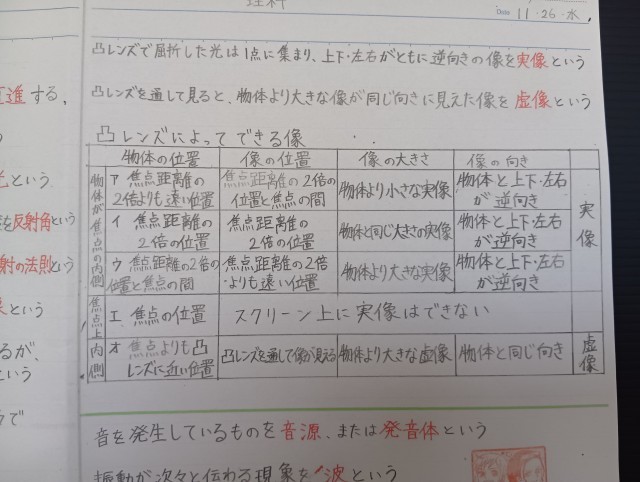 理科
Date 11・26・水.
凸レンズで屈折した光は1点に集まり、上下・左右がともに逆向きの像を実像という
凸レンズを通して見ると、物体より大きな像が同じ向きに見えた像を虚像という
凸レンズによってできる像
物体の位置 像の位置 像の大きさ 像の向き
物体が焦点の内側
ア 焦点距離の2倍よりも遠い位置 焦点距離の2倍の位置と焦点の間 物体より小さな実像 物体と上下・左右が逆向き
イ 焦点距離の2倍の位置 焦点距離の2倍の位置 物体と同じ大きさの実像 物体と上下・左右が逆向き
ウ 焦点距離の2倍の位置と焦点の間 焦点距離の2倍よりも遠い位置 物体より大きな実像 物体と上下・左右が逆向き
実像
焦点上 エ 焦点の位置 スクリーン上に実像はできない
内側 オ 焦点よりも凸レンズに近い位置 凸レンズを通して像が見える 物体より大きな虚像 物体と同じ向き 虚像
音を発生しているものを音源、または発音体という
振動が次々と伝わる現象を波という
直進する,
という
を反射角という
射の法則という
という
るが、
という
で